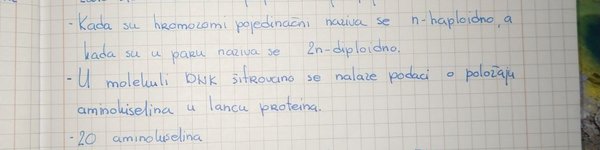 - Kada su hromozomi pojedinačni naziva se n-haploidno, a
kada su u paru naziva se 2n-diploidno.
- U molekuli DNK šifrovano se nalaze podaci o položaju
aminokiselina u lancu proteina.
- 20 aminokiselina